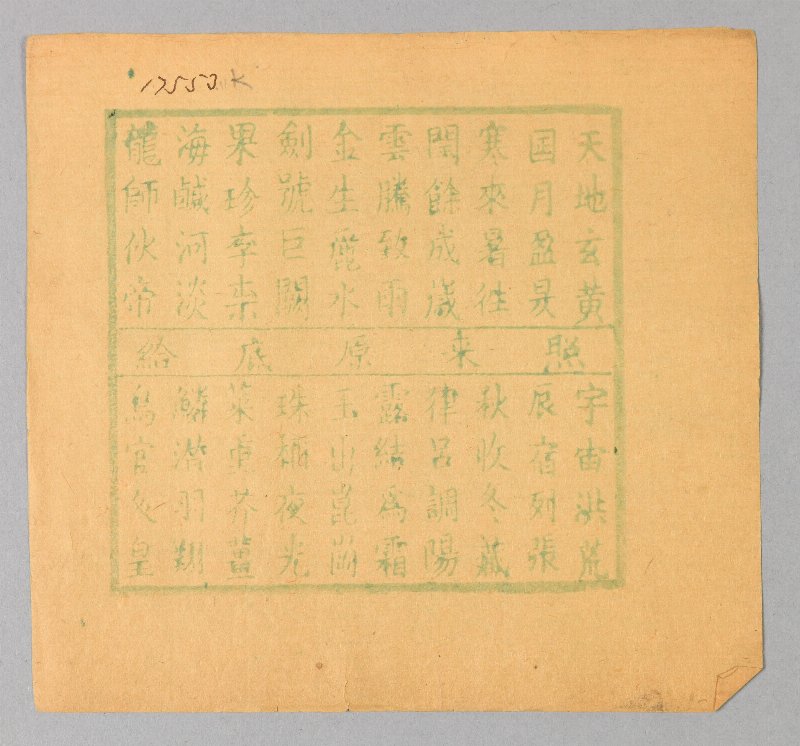 天地玄黃
囯月盈昃
寒來暑往
閏餘成歲
雲騰致雨
金生麗水
劍號巨闕
果珍李柰
海鹹河淡
龍師伙帝
照来原底給
宇宙洪荒
辰宿列張
秋收冬藏
律呂調陽
露結為霜
玉出崑崗
珠稱夜光
菜重芥薑
鱗潛羽翔
鳥官人皇